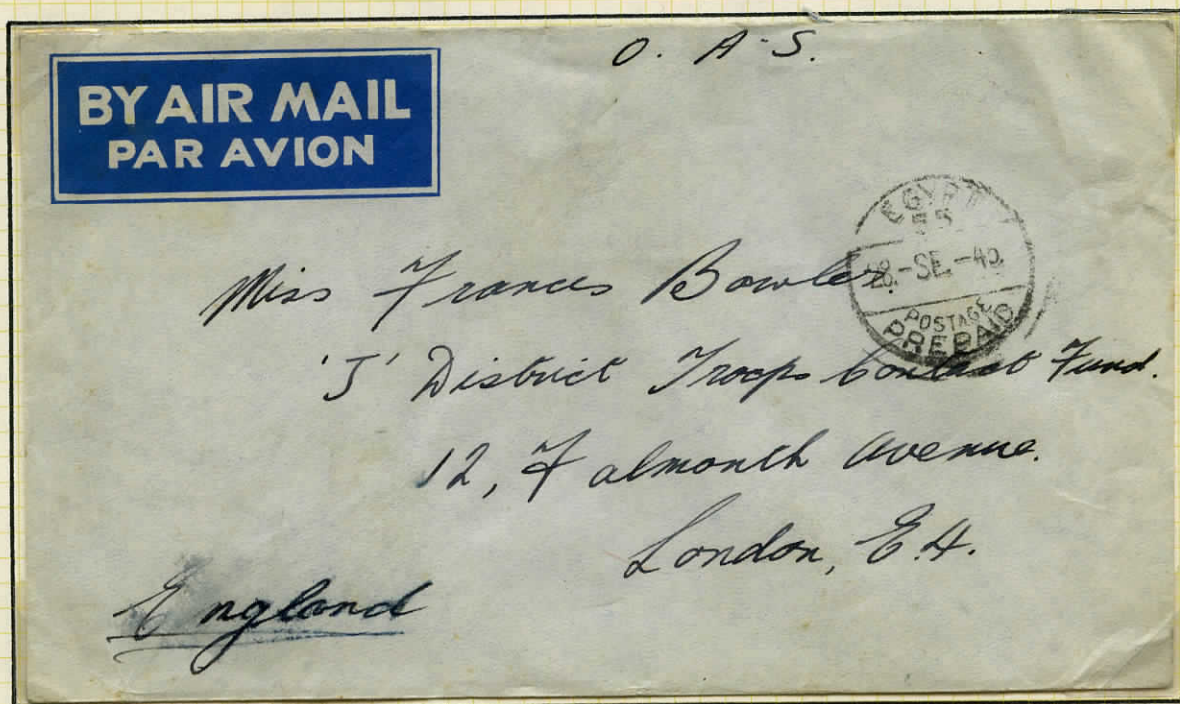 O. A. S.
BY AIR MAIL
PAR AVION
EGYPT
55
28.-SE.-40
POSTAGE
PREPAID
Miss Frances Bowler.
'J' District Troops Contact Fund.
12, Falmouth Avenue.
London, E.4.
England